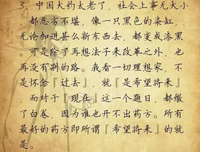 3、中国大约太老了，社会上事无大小
都恶劣不堪，像一只黑色的染缸，
无论加进甚么新东西去，都变成漆黑
。可是除了再想法子来改革之外，也
再没有别的路。我看一切理想家，不
是怀念「过去」，就「是希望将来」
，而对于「现在」这一个题目，都缴
了白卷，因为谁也开不出药方。所有
最好的药方即所谓「希望将来」的就
是。